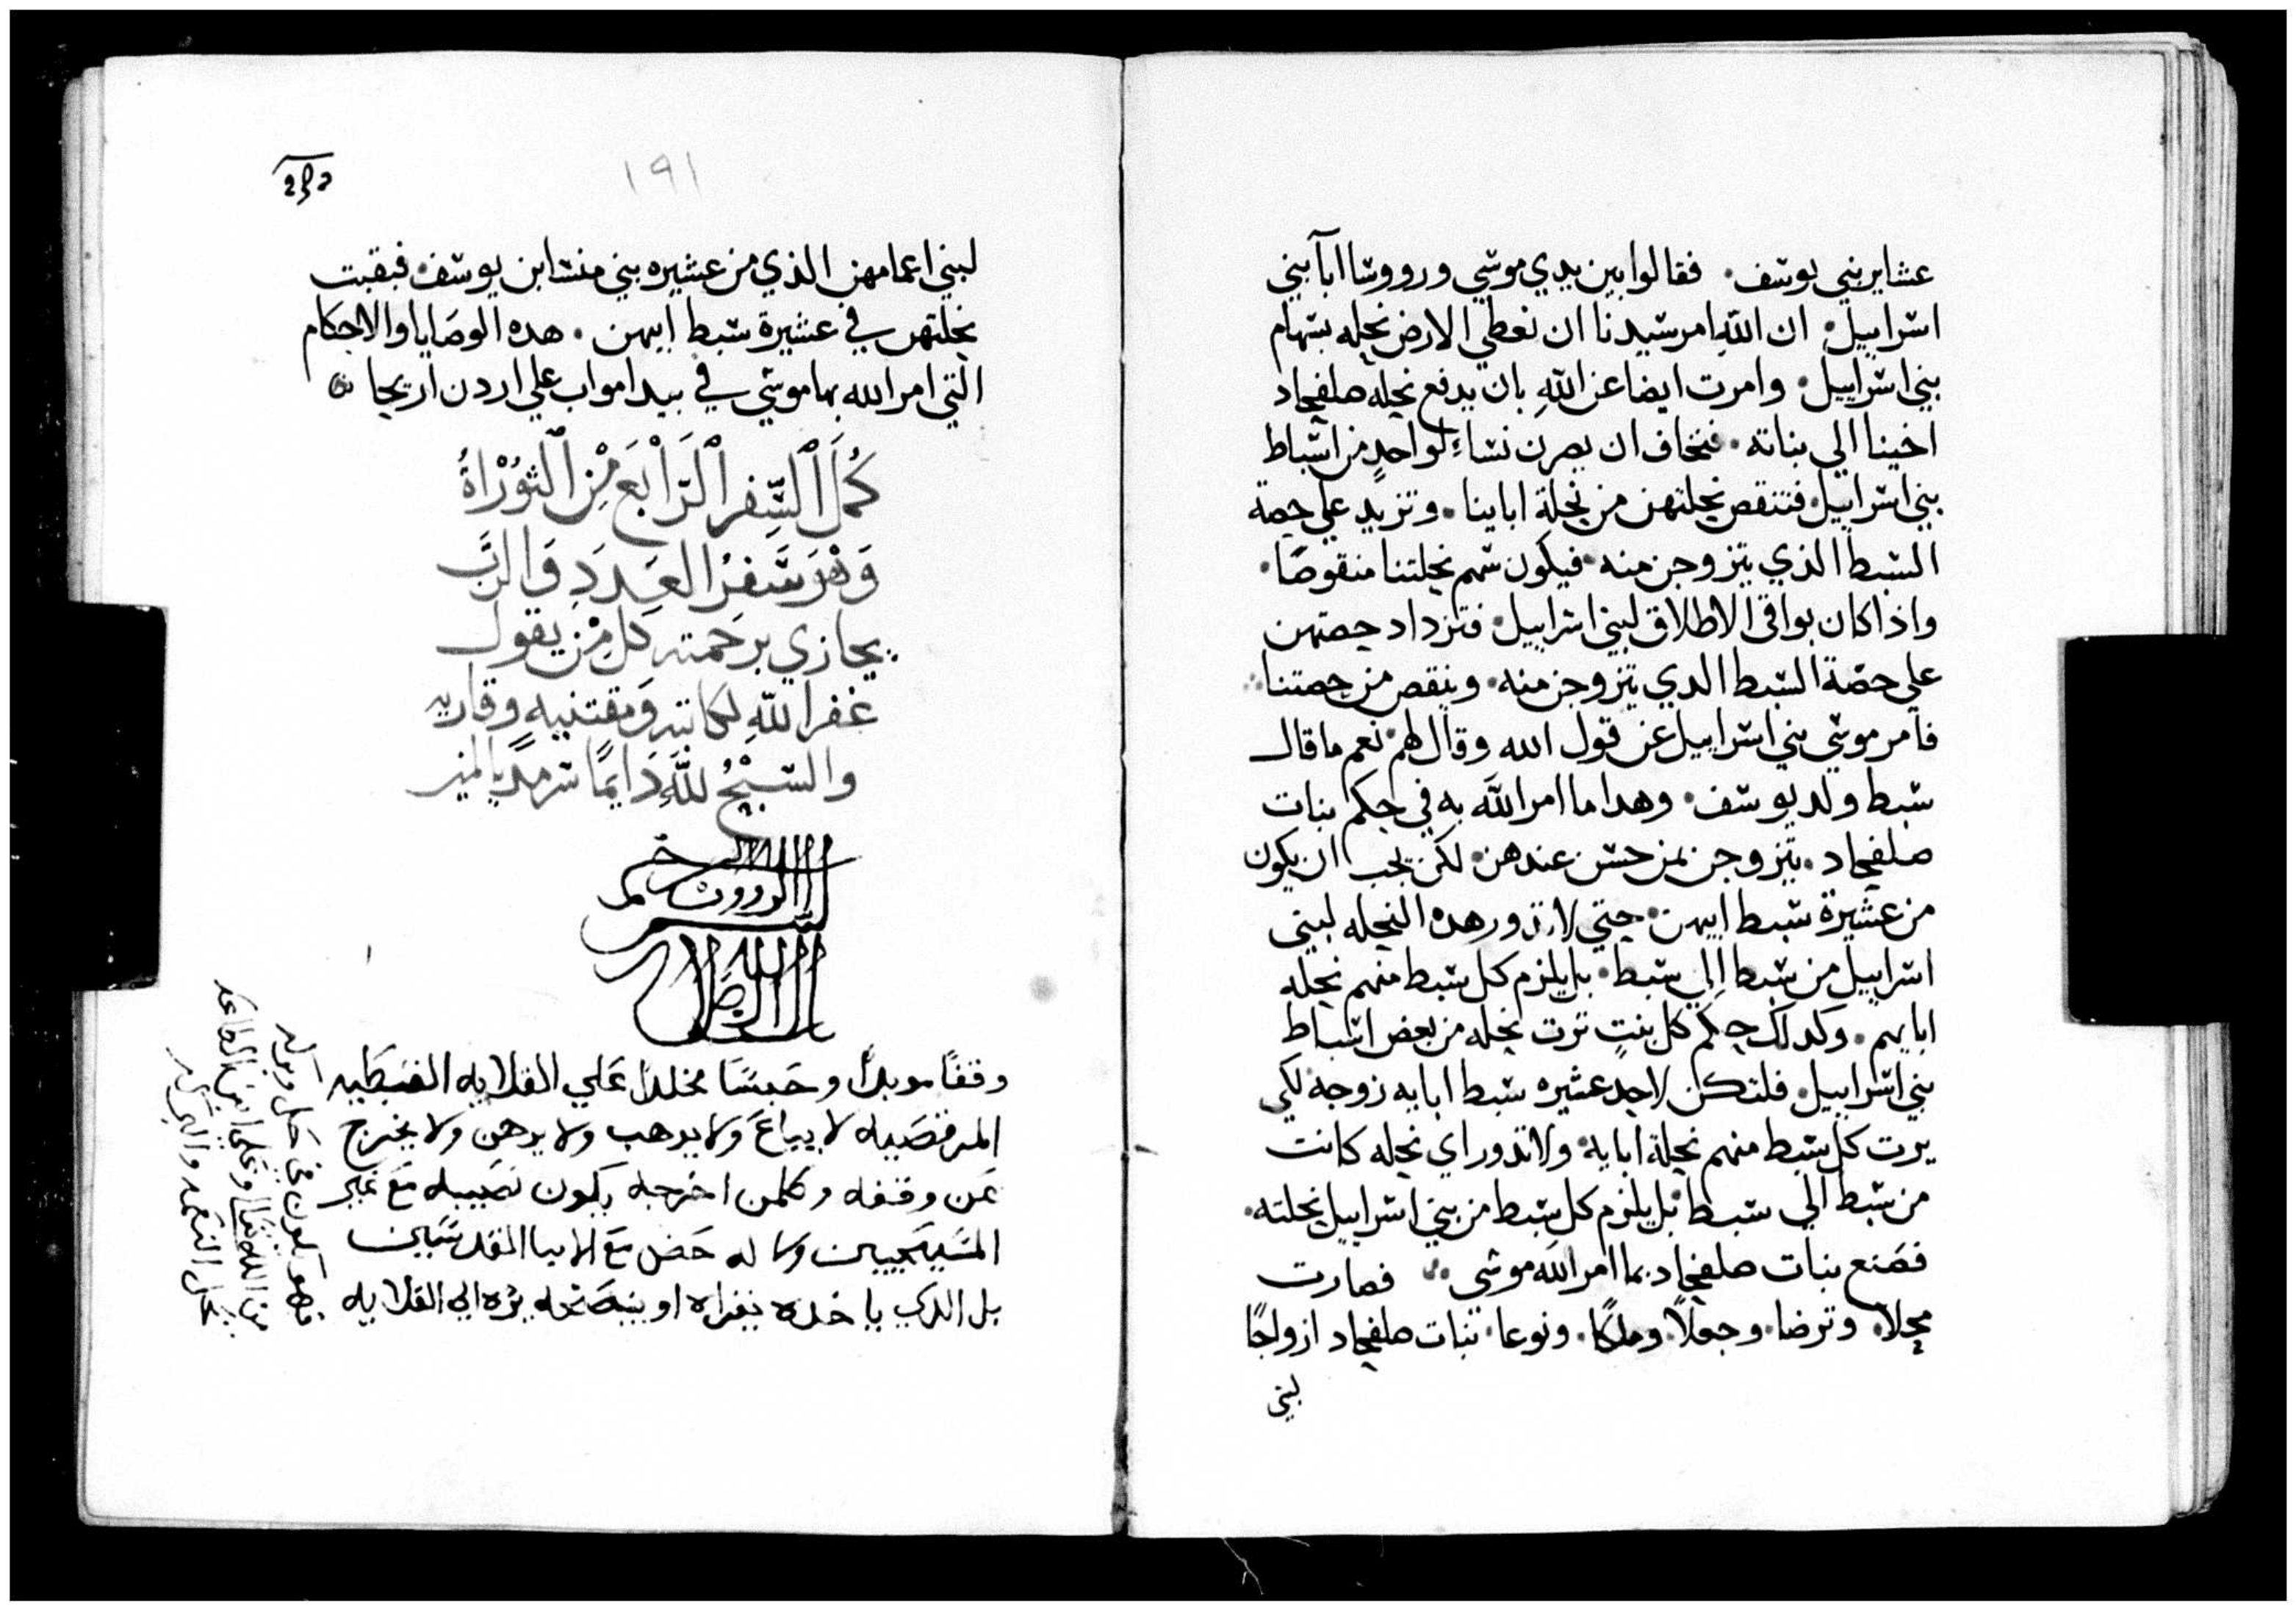 عشاير بني يوسف. فقالوا بين يدي موسي وروووسا ابآ بني
اسراييل. ان اللّه امر سيدنا ان نعطي الارض نحله بسهام
بني اسراييل. وامرت ايضا عن اللّه بان يدفع نحله صلفحاد
اخينا الي بناته. فنخاف ان يصرن نساءً لواحدٍ من اسباط
بني اسراييل. فتنقص نحلتهن من نحلة اباينا. وتزيد علي حصة
السبط الذي يتزوجن منه. فيكون سهم نحلتنا منقوصًا.
واذا كان بواقي الاطلاق لبني اسراييل. فتزداد حصتهن
علي حصّة السبط الدي يتزوجن منه. وينقص من حصتنا
فامر موسي بني اسراييل عن قول الله وقال لهم. نعم ما قال
سبط ولد يوسف. وهدا ما امر اللّه به في حكم بنات
صلفحاد. يتزوجن بمن حسن عندهن. لكن يجب ان يكون
من عشيرة سبط ابيهن. حتي لا تدور هده النحله لبني
اسراييل من سبط الي سبط. بل يلزم كل سبط منهم نحله
ابايهم. وكدلك حكم كل بنتٍ ترت نحله من بعض اسباط
بني اسراييل. فلتكن لاحد عشيره سبط ابايه زوجه. لكي
يرت كل سبط منهم نحلة ابايه. ولا تدور اي نحله كانت
من سبط الي سبط. بل يلزم كل سبط من بني اسراييل نحلته.
فصَنع بنات صلفحاد بما امر اللّه موسى فصارت
محلا. وترضا. وجعلاً. وملكا. ونوعا. بنات صلفحاد ازواجًا
لبني
١٩١
لبني اعمامهن الذي من عشيره بني منسا ابن يوسف. فبقيت
نحلتهن في عشيرة سبط ابيهن. هده الوصَايا والاحكام
التي امر الله بها موسي في بيدا مواب علي اردن اريحا
كُملَ السِّفر الرَّابعَ مِن التَّوْرَاةُ
وَهوَ سَّفرُ العَددِ وَالرَّب
يجازي برَحمته كل مِن يقول
غفر اللّه لكاتبه وَمقتنيه وقاريه
والسّبْحُ للّهِ دَايمًا سرمديا امين
بسم الله الرووف الرحيم
وقفًا موبدًا وحَبسًا مخلدًا عَلي القلايه القبطيه
المرقصَيه لا يباعَ ولا يوهب ولا يرهن ولا يخرج
عَن وقفه وكلمن اخرجه يكون نصَيبه مَع غير
المسَيحَيين ولا له حَض مَع الابا القدسَين
بل الدي ياخده يقراه او ينسَخه يرده الي القلايه